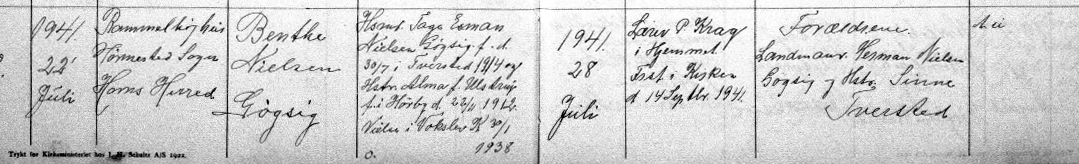 1941.
22'
Juli
Rammelhøjhus
Hørmested Sogn
Horns Herred
Benthe
Nielsen
Gøgsig
Husmd. Tage Esman
Nielsen Gøgsig f. d.
30/7 i Tversted 1914 og
Hstr. Alma f. Ulstrup
f. i Hørby d. 22/11 1912.
Vielse i Vokslev K 30/1
1938
o.
1941.
28
Juli
Lærer P. Krag
i Hjemmet
Frst. i Kirken
d 14 Septbr. 1941.
Forældrene.
Landmand Herman Nielsen
Gøgsig og Hstr. Sinne
Tversted
Trykt for Kirkeministeriet hos J. H. Schultz A/S 1922.